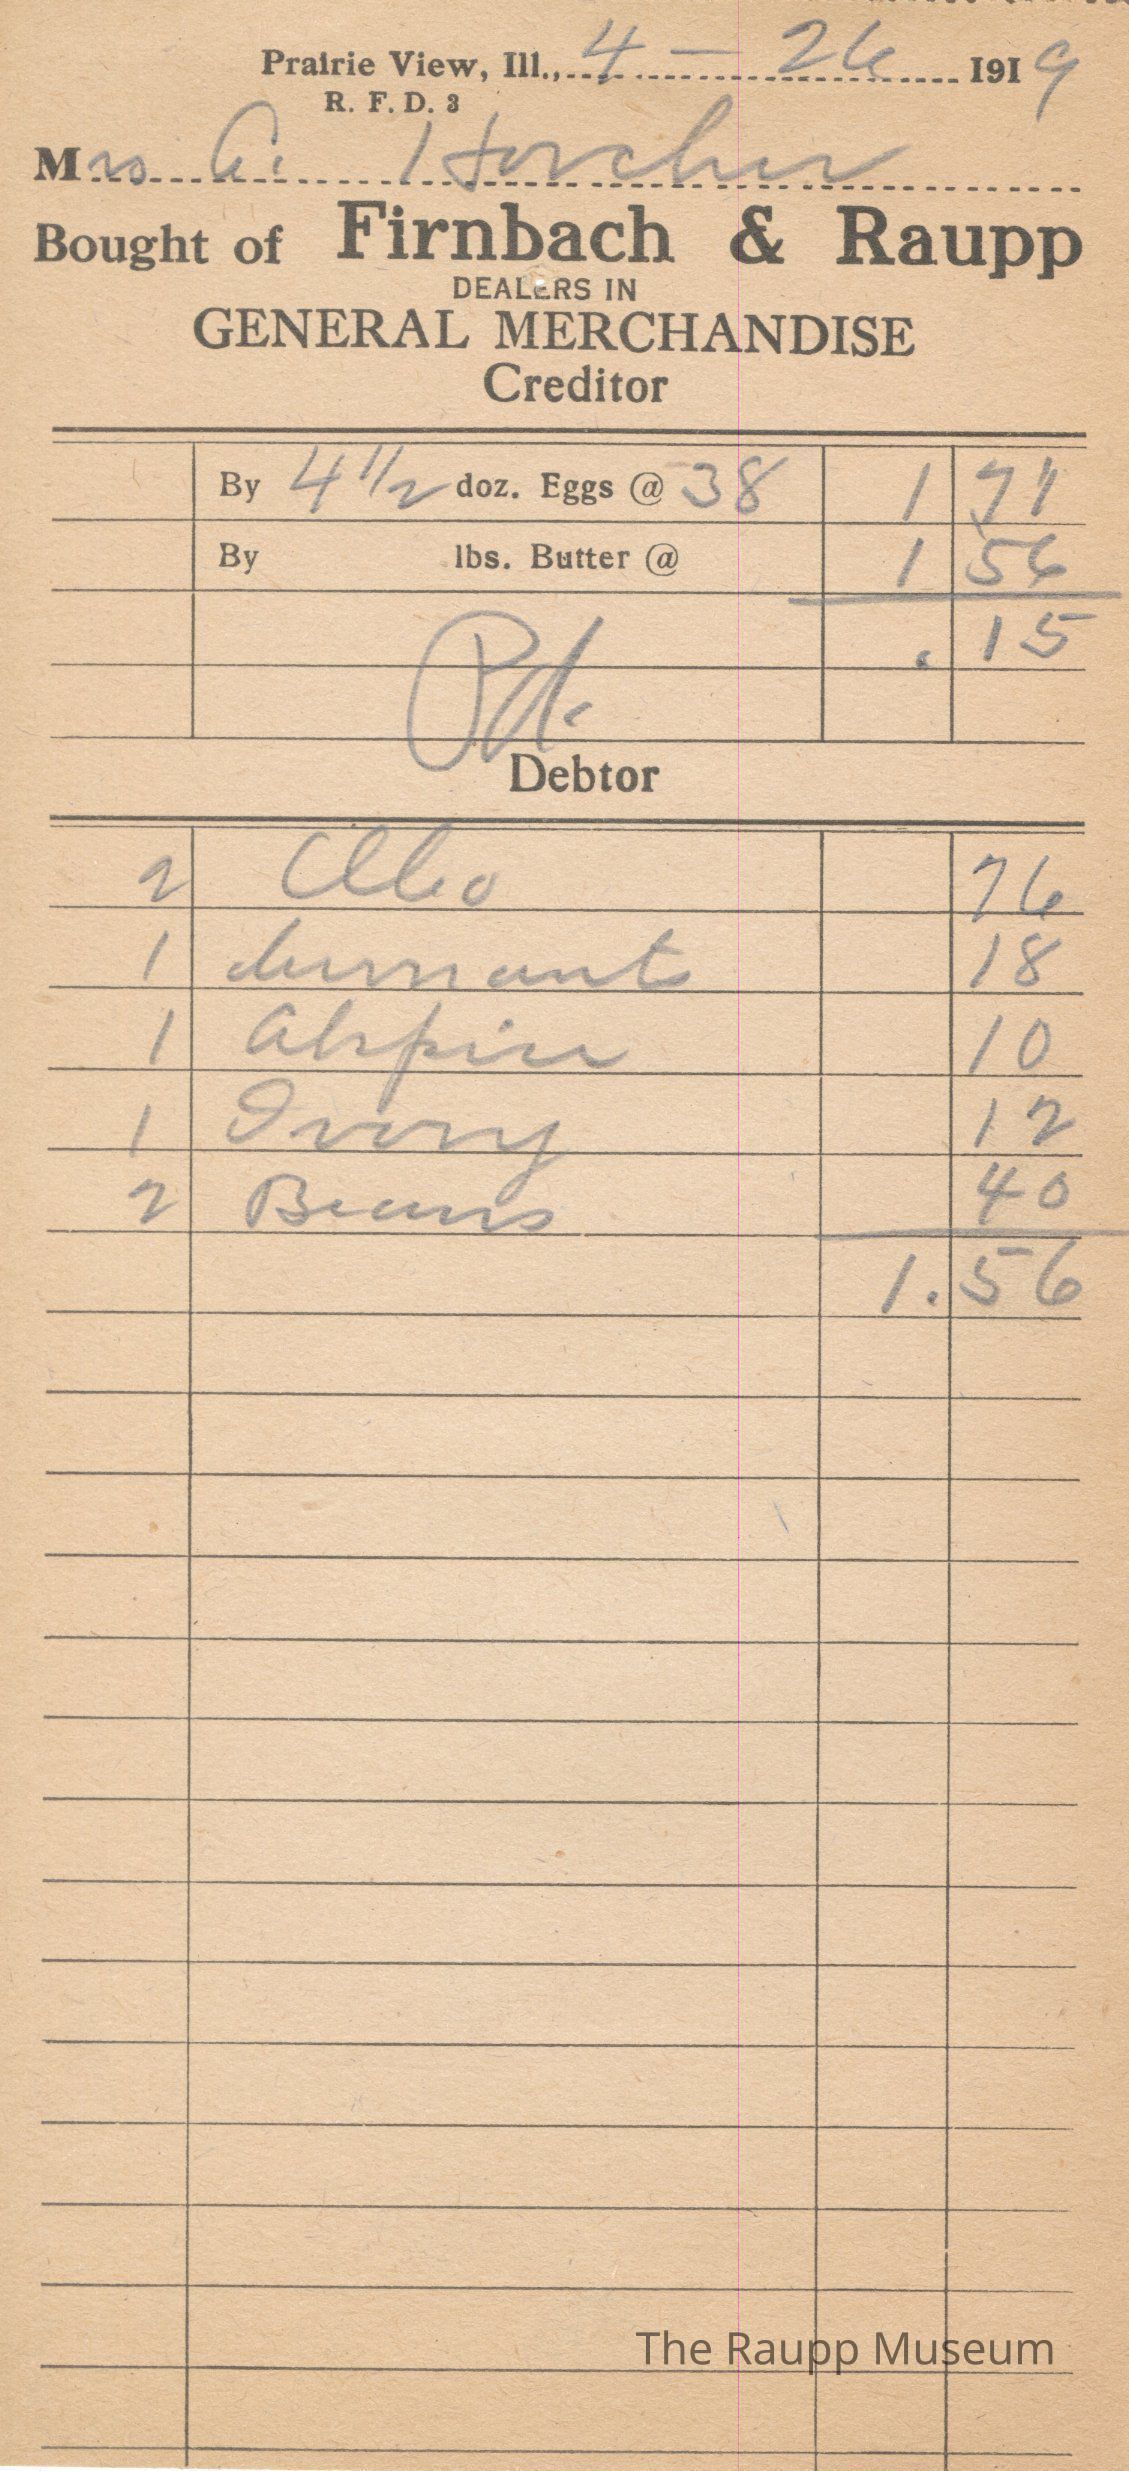 Prairie View, Ill., 4 - 26 1919
R. F. D. 3
Mrs A. Horcher
Bought of Firnbach & Raupp
DEALERS IN
GENERAL MERCHANDISE
Creditor
By 4 1/2 doz. Eggs @ 38 1 71
By lbs. Butter @ 1 56
. 15
Pd.
Debtor
2 Oleo 76
1 Currants 18
1 10
1 Ivory 12
2 Beans 40
1.56
The Raupp Museum